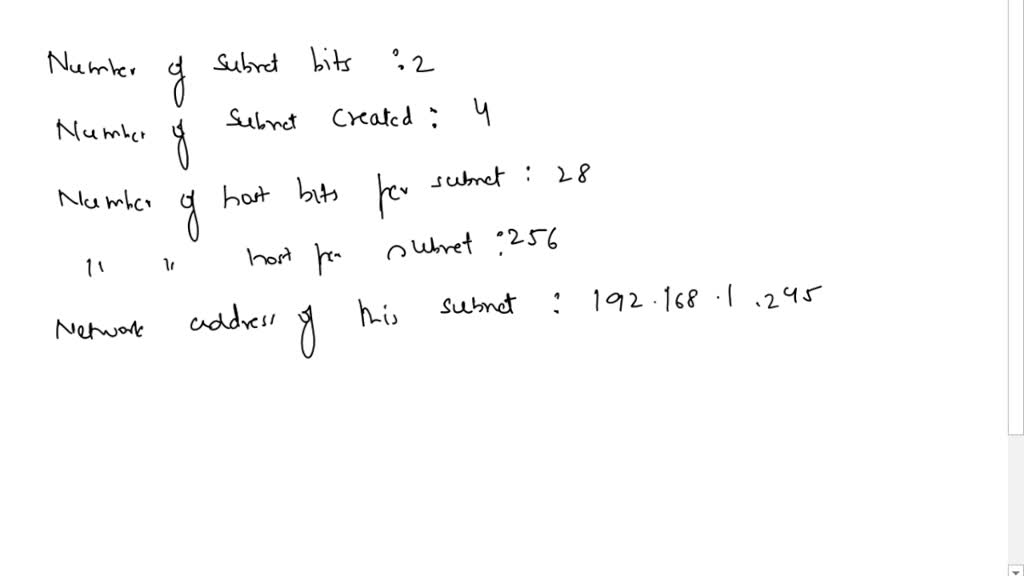 Number of subnet bits : 2
Number of subnet created : 4
Number of host bits per subnet : 28
" " host per subnet : 256
Network address of this subnet : 192.168.1.245